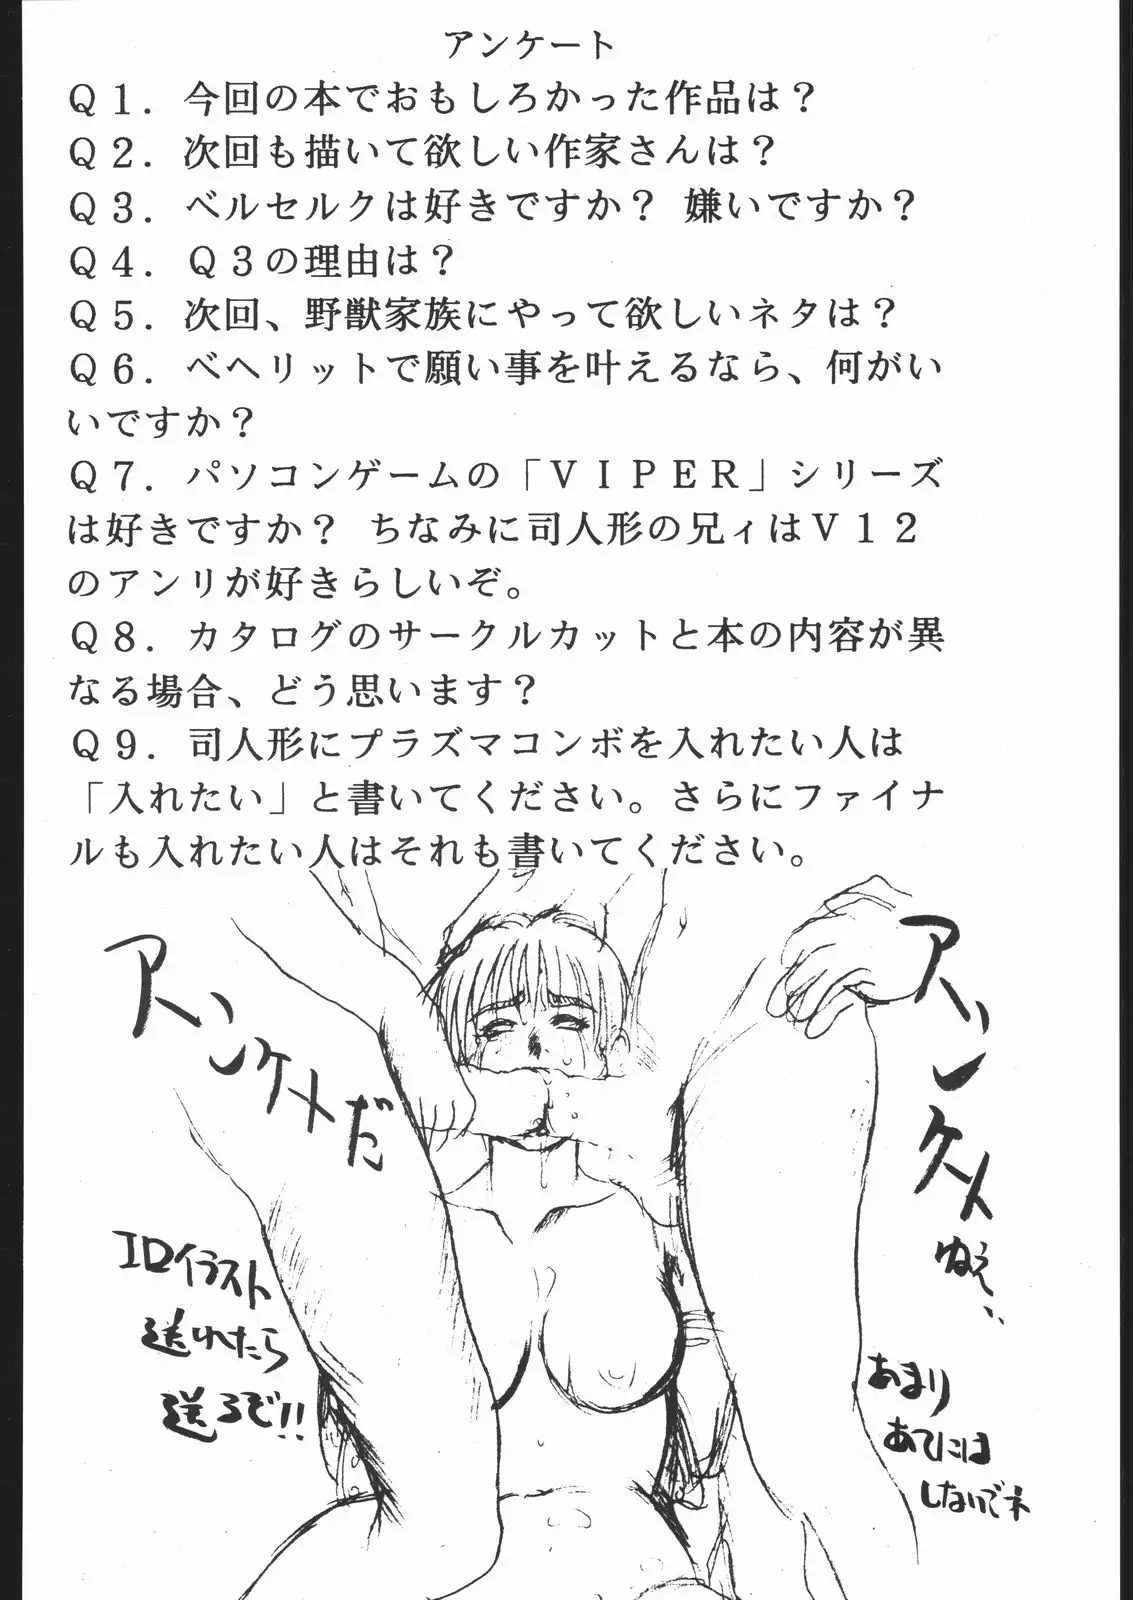 アンケート
Ｑ１．今回の本でおもしろかった作品は？
Ｑ２．次回も描いて欲しい作家さんは？
Ｑ３．ベルセルクは好きですか？ 嫌いですか？
Ｑ４．Ｑ３の理由は？
Ｑ５．次回、野獣家族にやって欲しいネタは？
Ｑ６．ベヘリットで願い事を叶えるなら、何がい
いですか？
Ｑ７．パソコンゲームの「ＶＩＰＥＲ」シリーズ
は好きですか？ ちなみに司人形の兄ィはＶ１２
のアンリが好きらしいぞ。
Ｑ８．カタログのサークルカットと本の内容が異
なる場合、どう思います？
Ｑ９．司人形にプラズマコンボを入れたい人は
「入れたい」と書いてください。さらにファイナ
ルも入れたい人はそれも書いてください。
アンケメだ
エロイラスト
送れたら
送るぞ!!
アンケメ
ねぇ、、
あまり
あてには
しないでネ